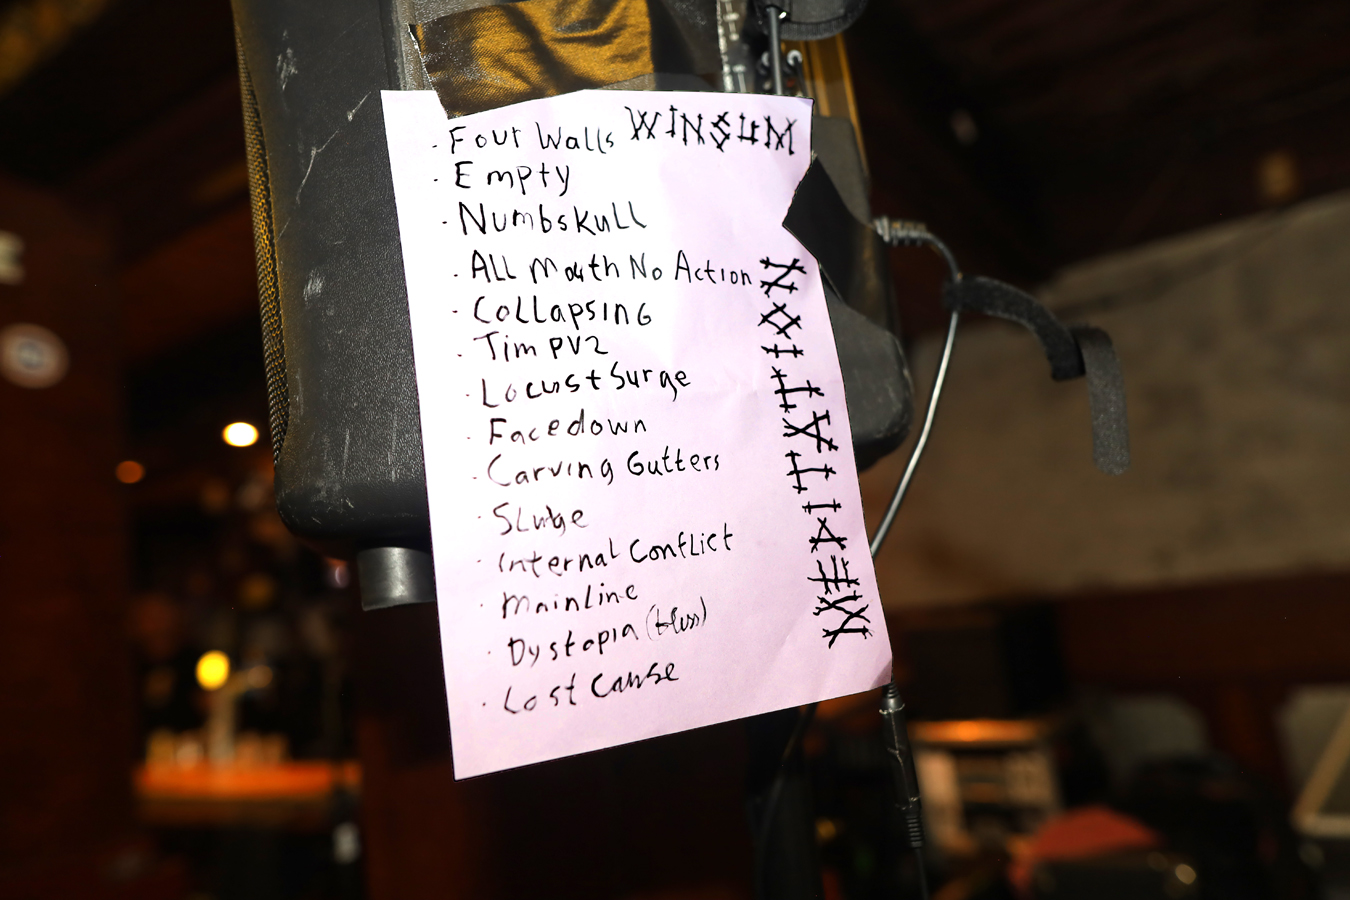 WINSUM
- Four Walls
- Empty
- Numbskull
- ALL Mouth No Action
- Collapsing
- Tim PV2
- Locust Surge
- Facedown
- Carving Gutters
- Sludge
- Internal Conflict
- Mainline
- Dystopia (bliss)
- Lost Cause